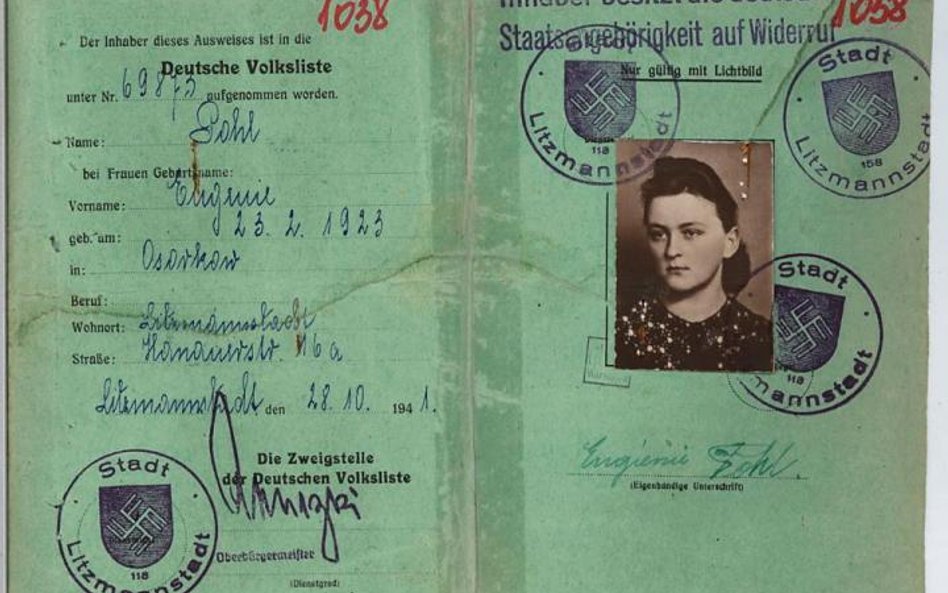 1038
Der Inhaber dieses Ausweises ist in die
Deutsche Volksliste
unter Nr. 69875 aufgenommen worden.
Name: Pohl
bei Frauen Geburtsname:
Vorname: Eugenie
geb. am: 23. 2. 1923
in: Osorkow
Beruf:
Wohnort: Litzmannstadt
Straße: Hanauerstr. 16a
Litzmannstadt den 28. 10. 1941.
Die Zweigstelle
der Deutschen Volksliste
Oberbürgermeister
(Dienstgrad)
Stadt
Litzmannstadt
118
1038
Staatsangehörigkeit auf Widerruf
Nur gültig mit Lichtbild
Litzmannstadt
118
Stadt
Litzmannstadt
158
Stadt
mannstadt
118
Eugienii Pohl.
(Eigenhändige Unterschrift)